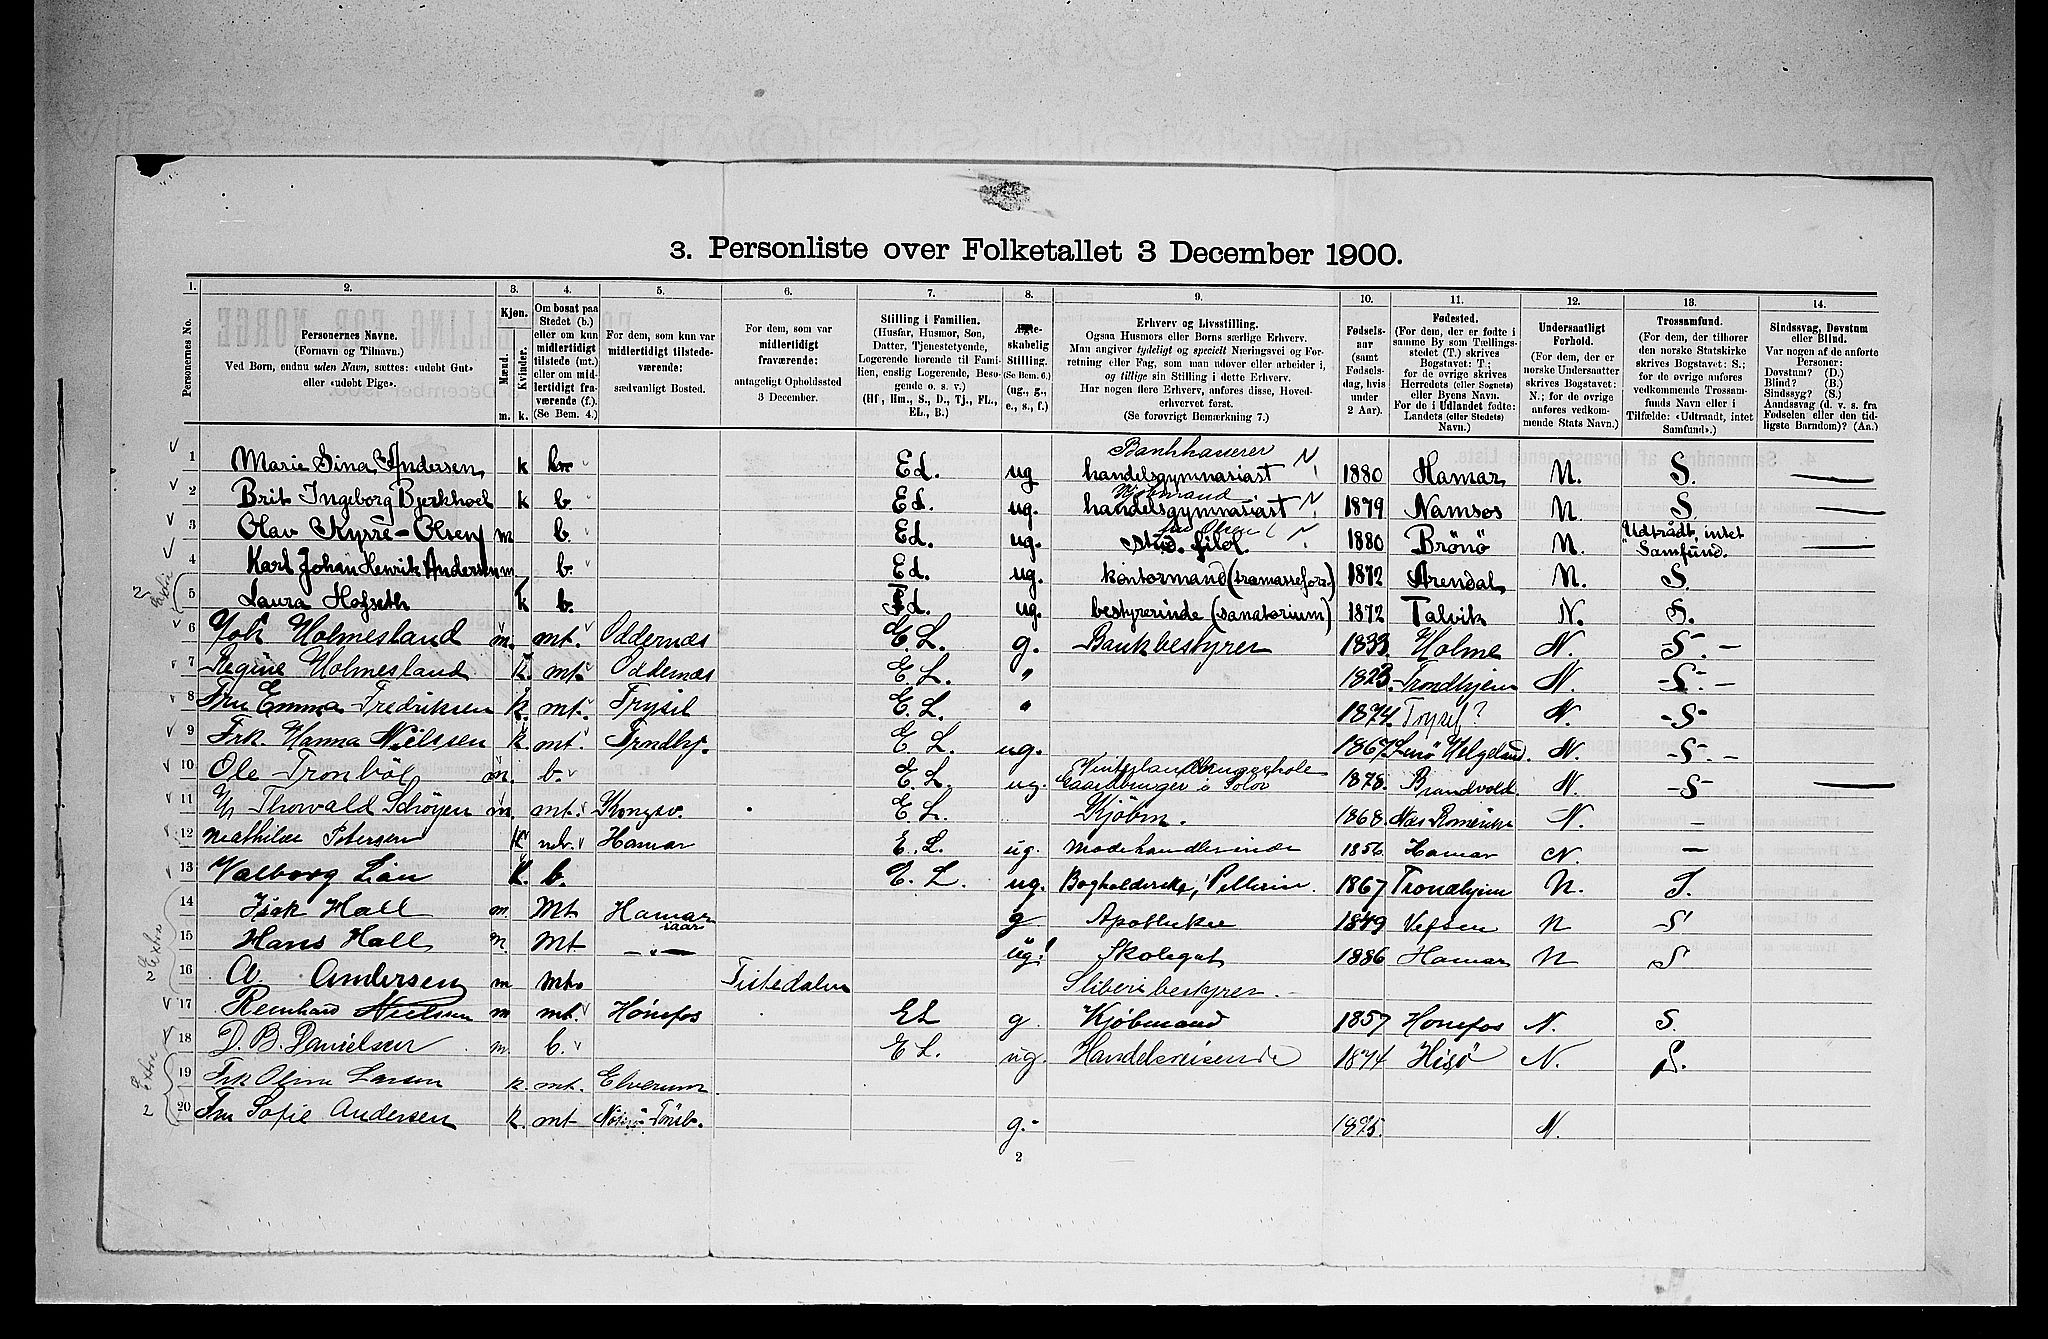 3. Personliste over Folketallet 3 December 1900.
1. 2. 3. 4. 5. 6. 7. 8. 9. 10. 11. 12. 13. 14.
Personernes No.
Personernes Navne.
(Fornavn og Tilnavn.)
Ved Børn, endnu uden Navn, sættes: «udøbt Gut»
eller «udøbt Pige».
Kjøn.
Mænd. Kvinder.
m. k.
Om bosat paa
Stedet (b.)
eller om kun
midlertidigt
tilstede (mt.)
eller om mid-
lertidigt fra-
værende (f.).
(Se Bem. 4.)
For dem, som kun var
midlertidigt tilstede-
værende:
sædvanligt Bosted.
For dem, som var
midlertidigt
fraværende:
antageligt Opholdssted
3 December.
Stilling i Familien.
(Husfar, Husmor, Søn,
Datter, Tjenestetyende,
Logerende hørende til Fami-
lien, enslig Logerende, Besø-
gende o. s. v.)
(Hf, Hm., S., D., Tj., FL.,
EL., B.)
skabelig
Stilling.
(Se Bem. 6.)
(ug., g.,
e., s., f.)
Erhverv og Livsstilling.
Ogsaa Husmors eller Børns særlige Erhverv.
Man angiver tydeligt og specielt Næringsvei og For-
retning eller Fag, som man udøver eller arbeider i,
og tillige sin Stilling i dette Erhverv.
Har nogen flere Erhverv, anføres disse, Hoved-
erhvervet først.
(Se forøvrigt Bemerkning 7.)
Fødsels-
aar
(samt
Fødsels-
dag, hvis
under
2 Aar).
Fødested.
(For dem, der er fødte i
samme By som Tællings-
stedet (T.) skrives
Bogstavet: T.;
for de øvrige skrives
Herredets (eller Sognets)
eller Byens Navn.
For de i Udlandet fødte:
Landets (eller Stedets)
Navn.)
Undersaatligt
Forhold.
(For dem, der er
norske Undersaatter
skrives Bogstavet:
N.; for de øvrige
anføres vedkom-
mende Stats Navn.)
Trossamfund.
(For dem, der tilhører
den norske Statskirke
skrives Bogstavet: S.;
for de øvrige anføres
vedkommende Trossam-
funds Navn eller i
Tilfælde: «Udtraadt, intet
Samfund».)
Sindssvag, Døvstum
eller Blind.
Var nogen af de anførte
Personer:
Døvstum? (D.)
Blind? (B.)
Sindssyg? (S.)
Aandssvag (d. v. s. fra
Fødselen eller den tid-
ligste Barndom)? (Aa.)
1 Marie Sina Andersen k Ed. ug handelsgymnasiast 1880 Hamar N. S. —
2 Brit Ingeborg Bjerkhoel k b Ed. ug. handelsgymnasiast 1879 Namsos N S. —
3 Olav Kyrre-Olsen m b. Ed. ug. stud. filol. 1880 Brönö N. Udtrådt, intet Samfund. —
4 Karl Johan Henrik Andersen m b. Ed. ug. kontormand (tramasseforr.) 1872 Arendal N. S.
5 Laura Hofseth k b. Ed. ug. bestyrerinde (sanatorium) 1872 Talvik N. S.
6 Joh Holmesland m. mt. Oddernæs E. L. g. Bankbestyrer 1833. Holme N. S. —
7 Regine Holmesland k. mt. Oddernæs E. L. " 1823. Trondhjem N. S. —
8 Fru Emma Fredriksen k. mt. Trysil E. L. " 1874. Trysil? N. S
9 Frk. Hanna Nielssen k. mt. Trndhj. E L. ug. 1867 Helgeland. N. S —
10 Ole Tronböl m. b. E. L. ug. Gaardbruger i Solör 1878. Brandvold. N. S —
11 Thorvald m. mt. Kongsv. E L. Kjöbm. 1868. Næs Romerike N. —
12 Mathilde Petersen k Hamar E. L. ug. Modehandlerinde 1856 Hamar N. —
13 Valborg Lian k. b. E. L. ug. Bogholderske, 1867 Trondhjem N. S.
14 Isak Hall m. Mt Hamar g Apotheker 1849 Vefsen N S
15 Hans Hall m. Mt —„— ug! Skolegut 1886 Hamar N S
16 A. Andersen m Tistedalen Sliberibestyrer.
17 Reinhard Nielssen m mt. Hønefos EL g. Kjöbmand 1857 Honefos N. S.
18 D. B. Danielsen m. b. E L. ug. Handelsreisende 1874 Hisö N. S.
19 Frk Larsen k. mt. Elverum
20 Fru Sofie Andersen k. mt Tönsb. g. 1875. N.
Extra
2
Extra
2
Extra
2
2